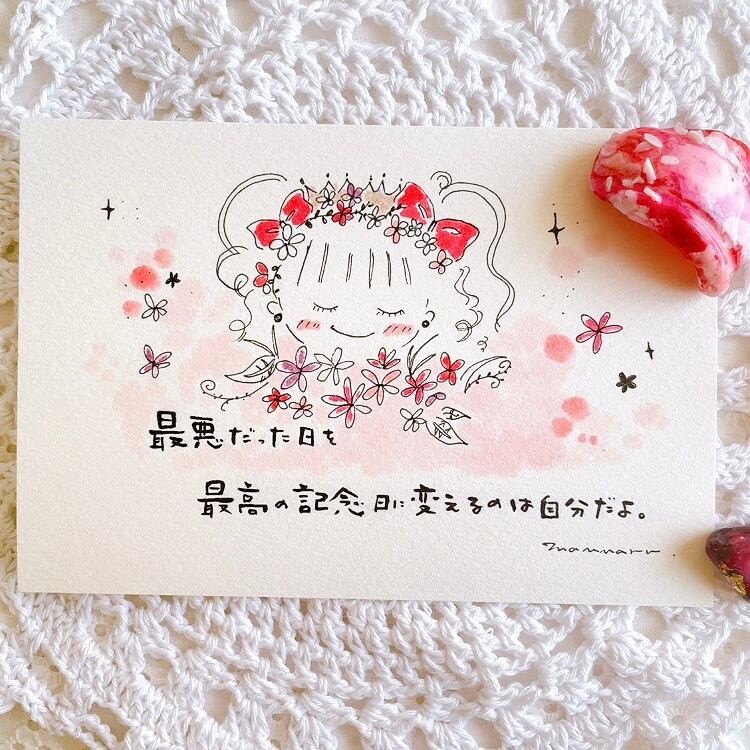 最悪だった日を
最高の記念日に変えるのは自分だよ。